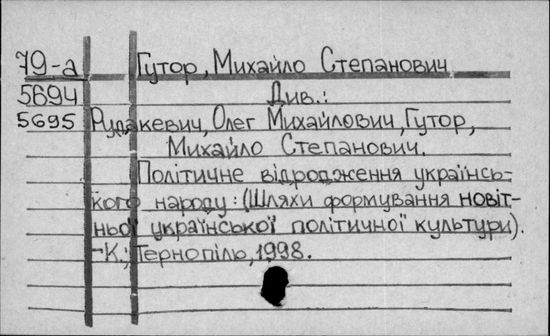 79-а Гутор, Михайло Степанович
5694 Див.:
5695 Рудакевич, Олег Михайлович, Гутор,
Михайло Степанович.
Політичне відродження українсь-
кого народу: (Шляхи формування новіт-
ньої української політичної культури).
-К.; Тернопіль, 1998.